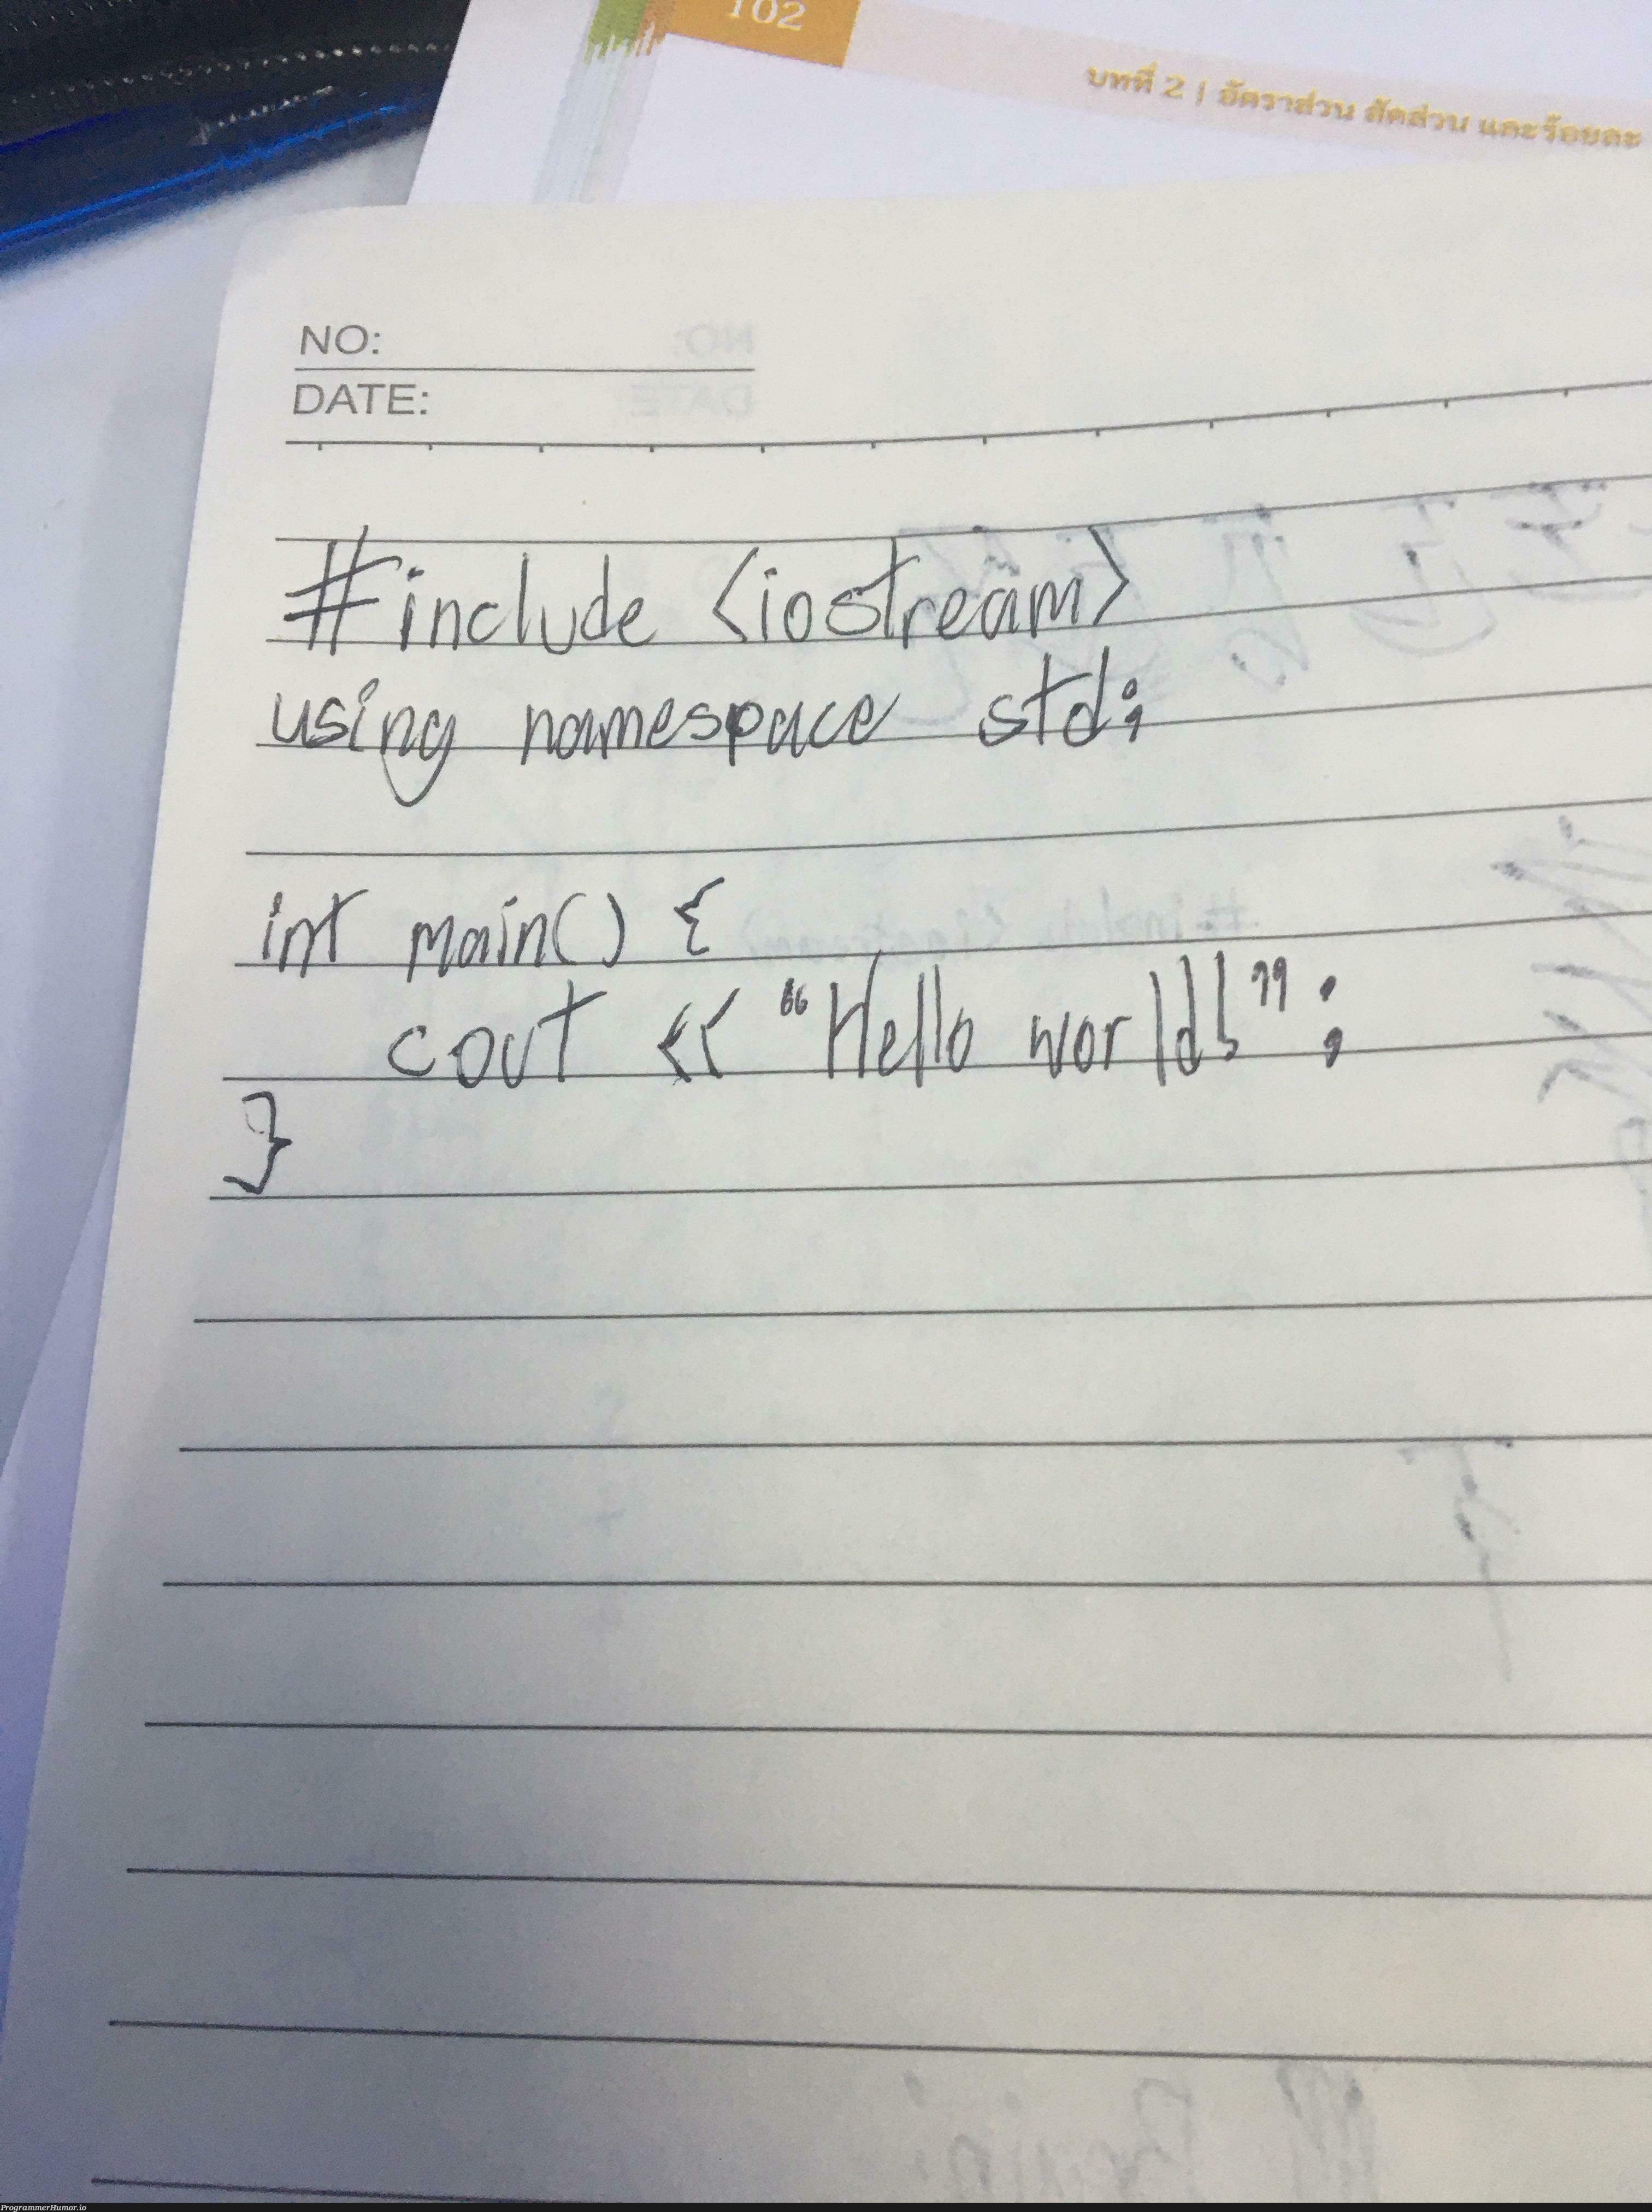 102
บทที่ 2 | อัตราส่วน สัดส่วน และร้อยละ
NO:
DATE:
#include <iostream>
using namespace std;
int main() {
cout << “Hello world!”;
}
ProgrammerHumor.io